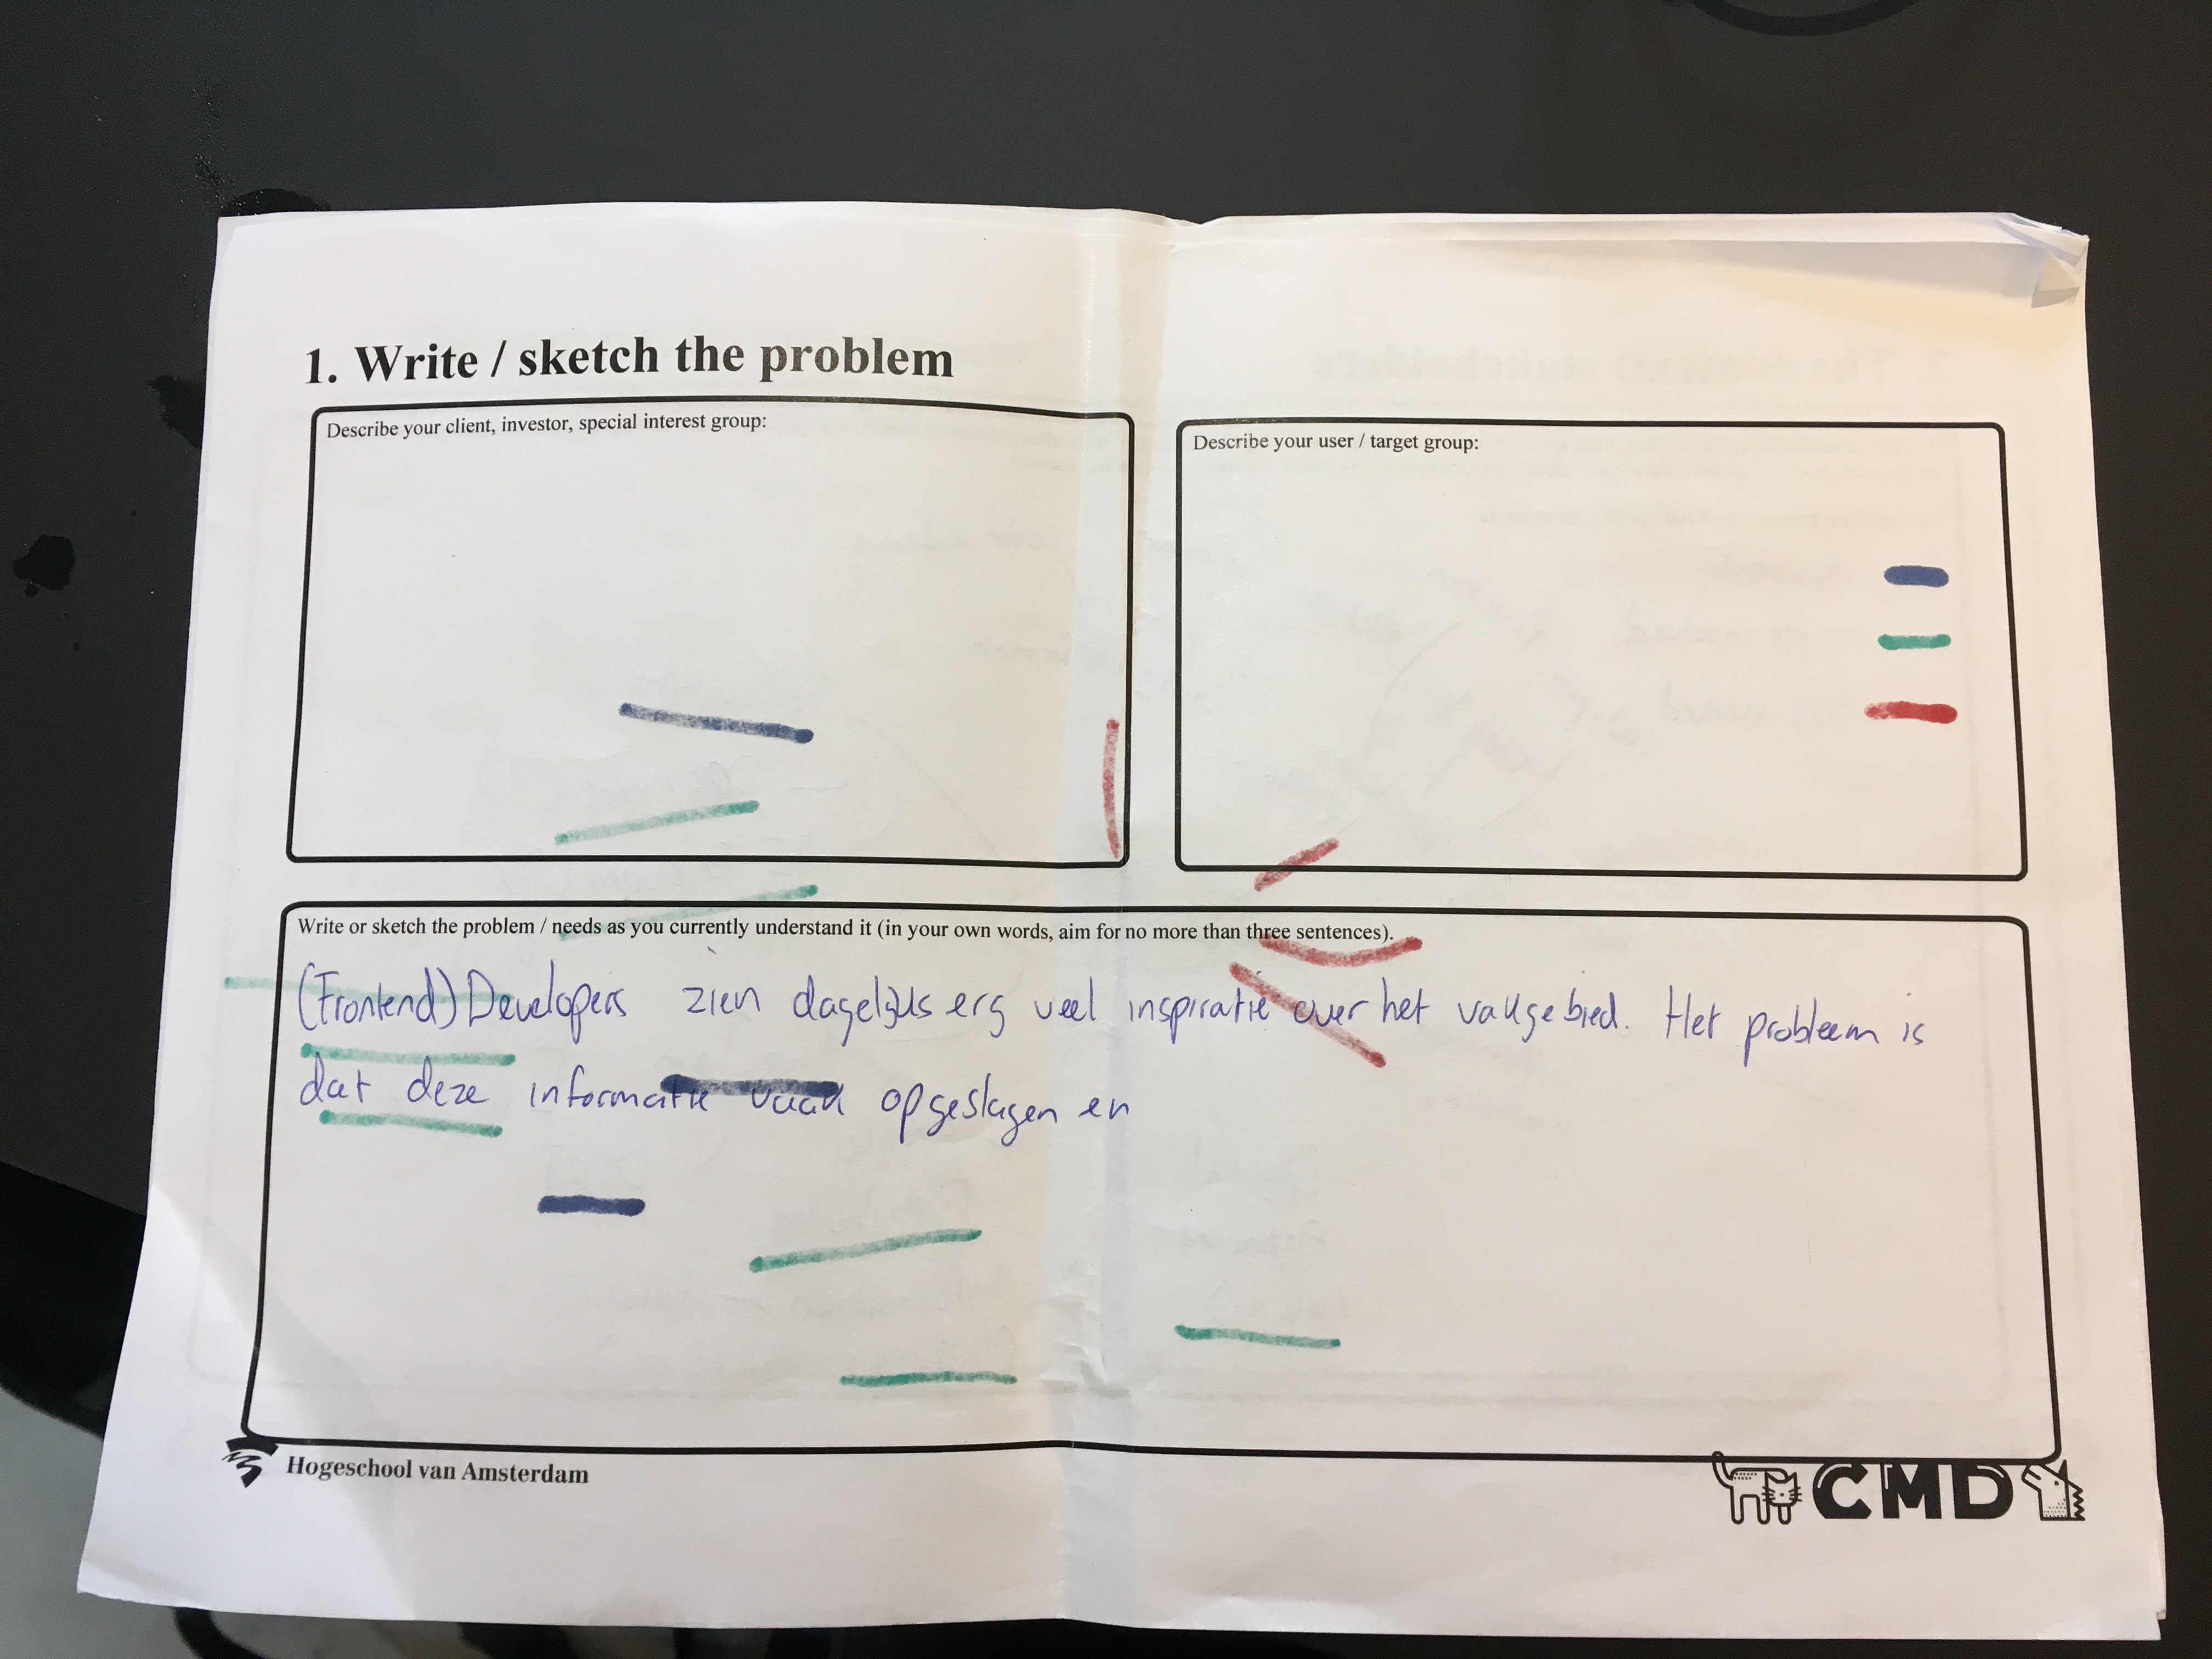 1. Write / sketch the problem
Describe your client, investor, special interest group:
Describe your user / target group:
Write or sketch the problem / needs as you currently understand it (in your own words, aim for no more than three sentences).
(Frontend) Developers zien dagelijks erg veel inspiratie over het vakgebied. Het probleem is
dat deze informatie vaak opgeslagen en
Hogeschool van Amsterdam
CMD